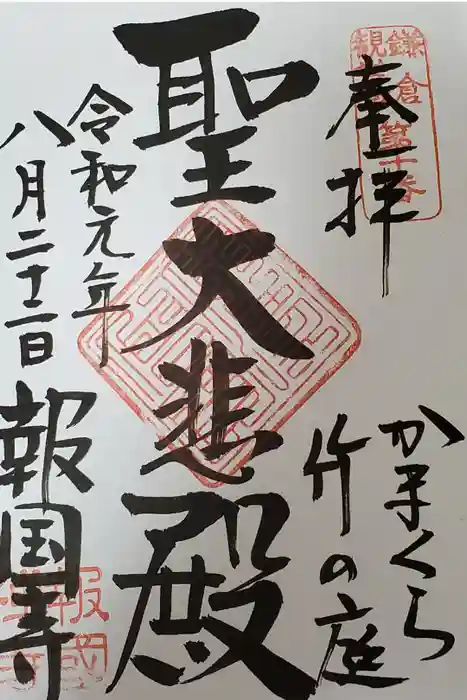 奉拝
鎌倉
観音
第十番
かまくら
竹の庭
聖大悲殿
令和元年
八月二十二日
報国寺
報國